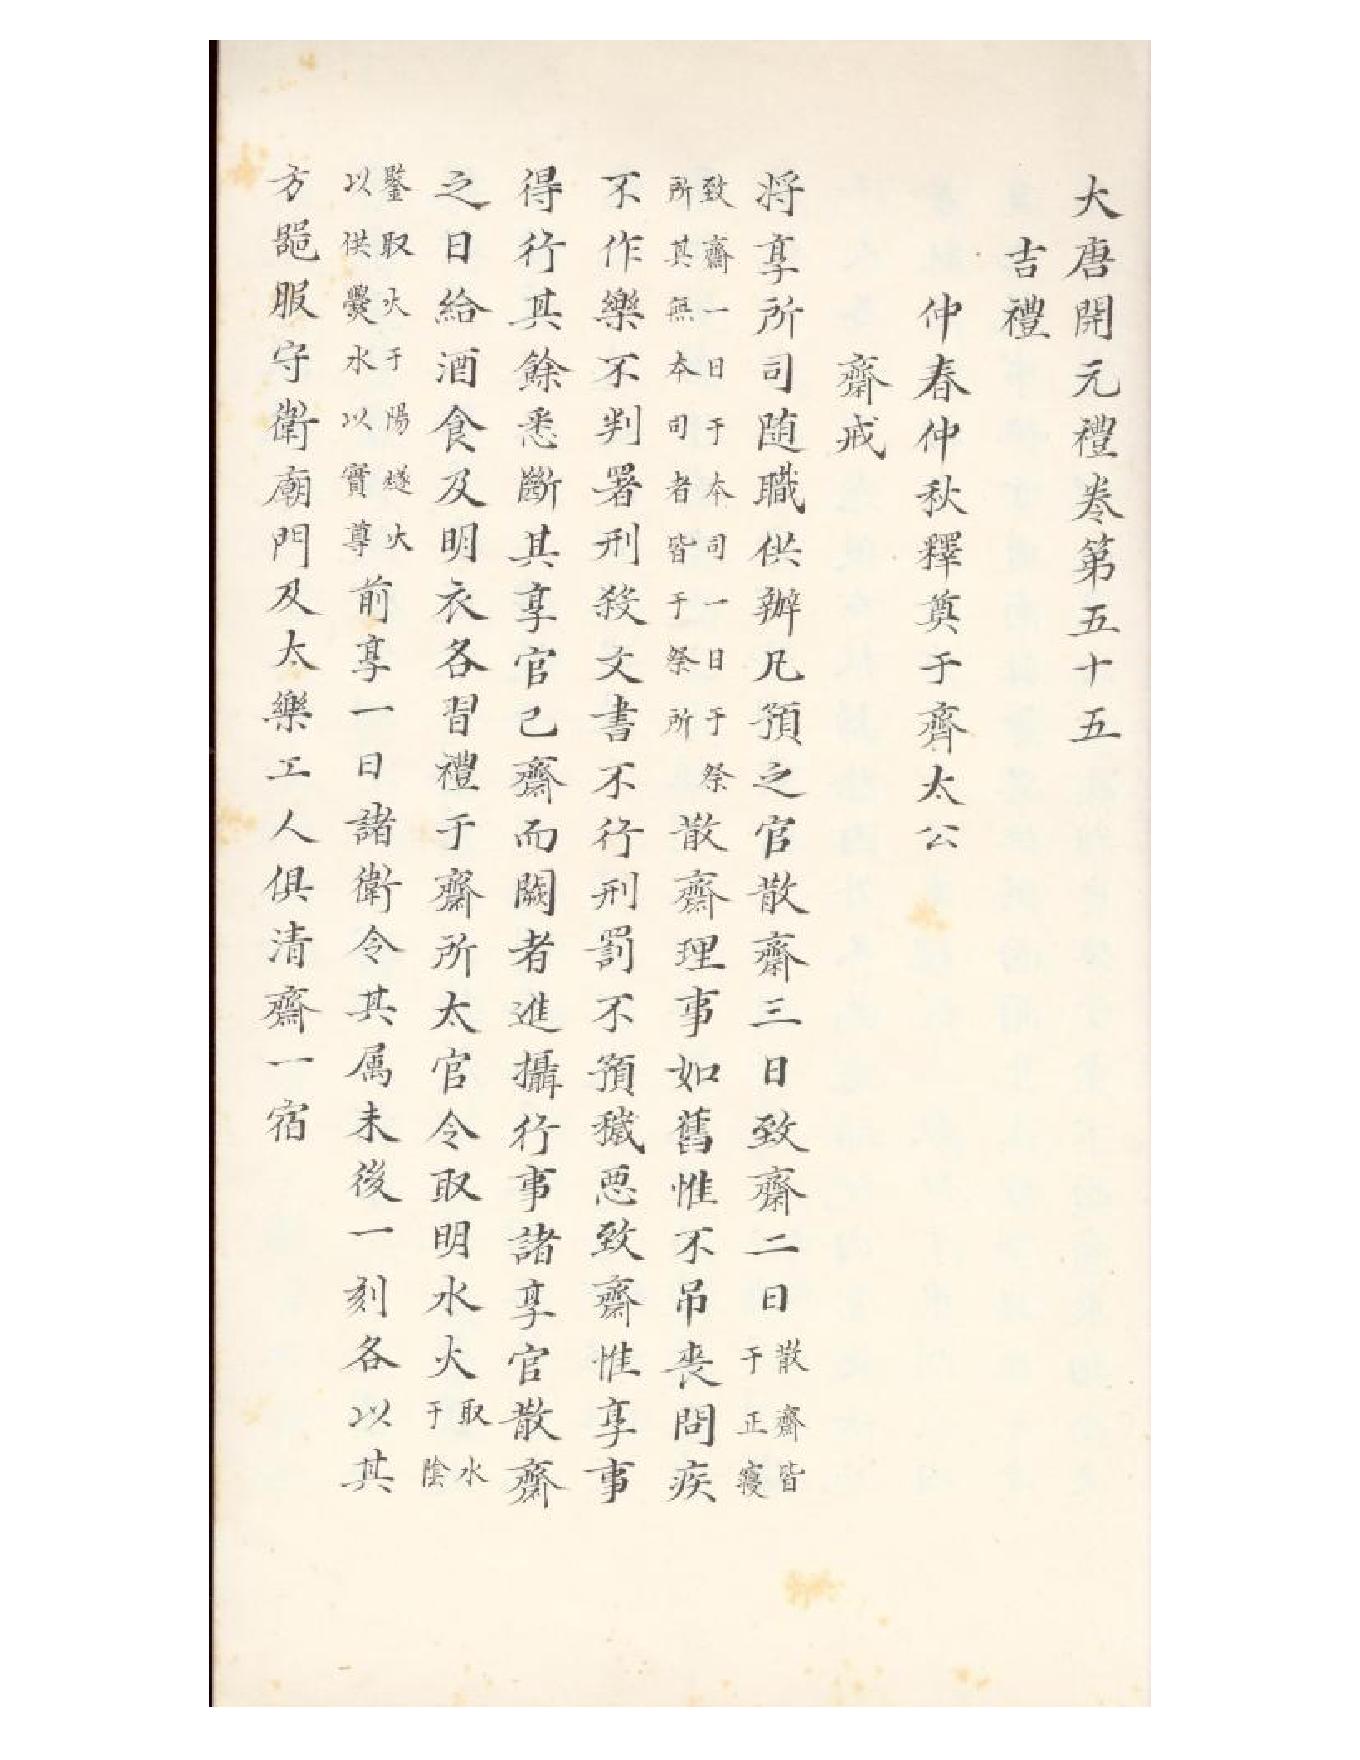 大唐開元禮卷第五十五
吉禮
仲春仲秋釋奠于齊太公
齋戒
將享所司隨職供辦凡預之官散齋三日致齋二日散齋皆于正寢
致齋一日于本司一日于祭所其無本司者皆于祭所散齋理事如舊惟不吊喪問疾
不作樂不判署刑殺文書不行刑罰不預穢惡致齋惟享事
得行其餘悉斷其享官已齋而闕者進攝行事諸享官散齋
之日給酒食及明衣各習禮于齋所太官令取明水火取水于陰
鑒取火于陽燧火以供爨水以實尊前享一日諸衛令其属未後一刻各以其
方器服守衛廟門及太樂工人俱清齋一宿